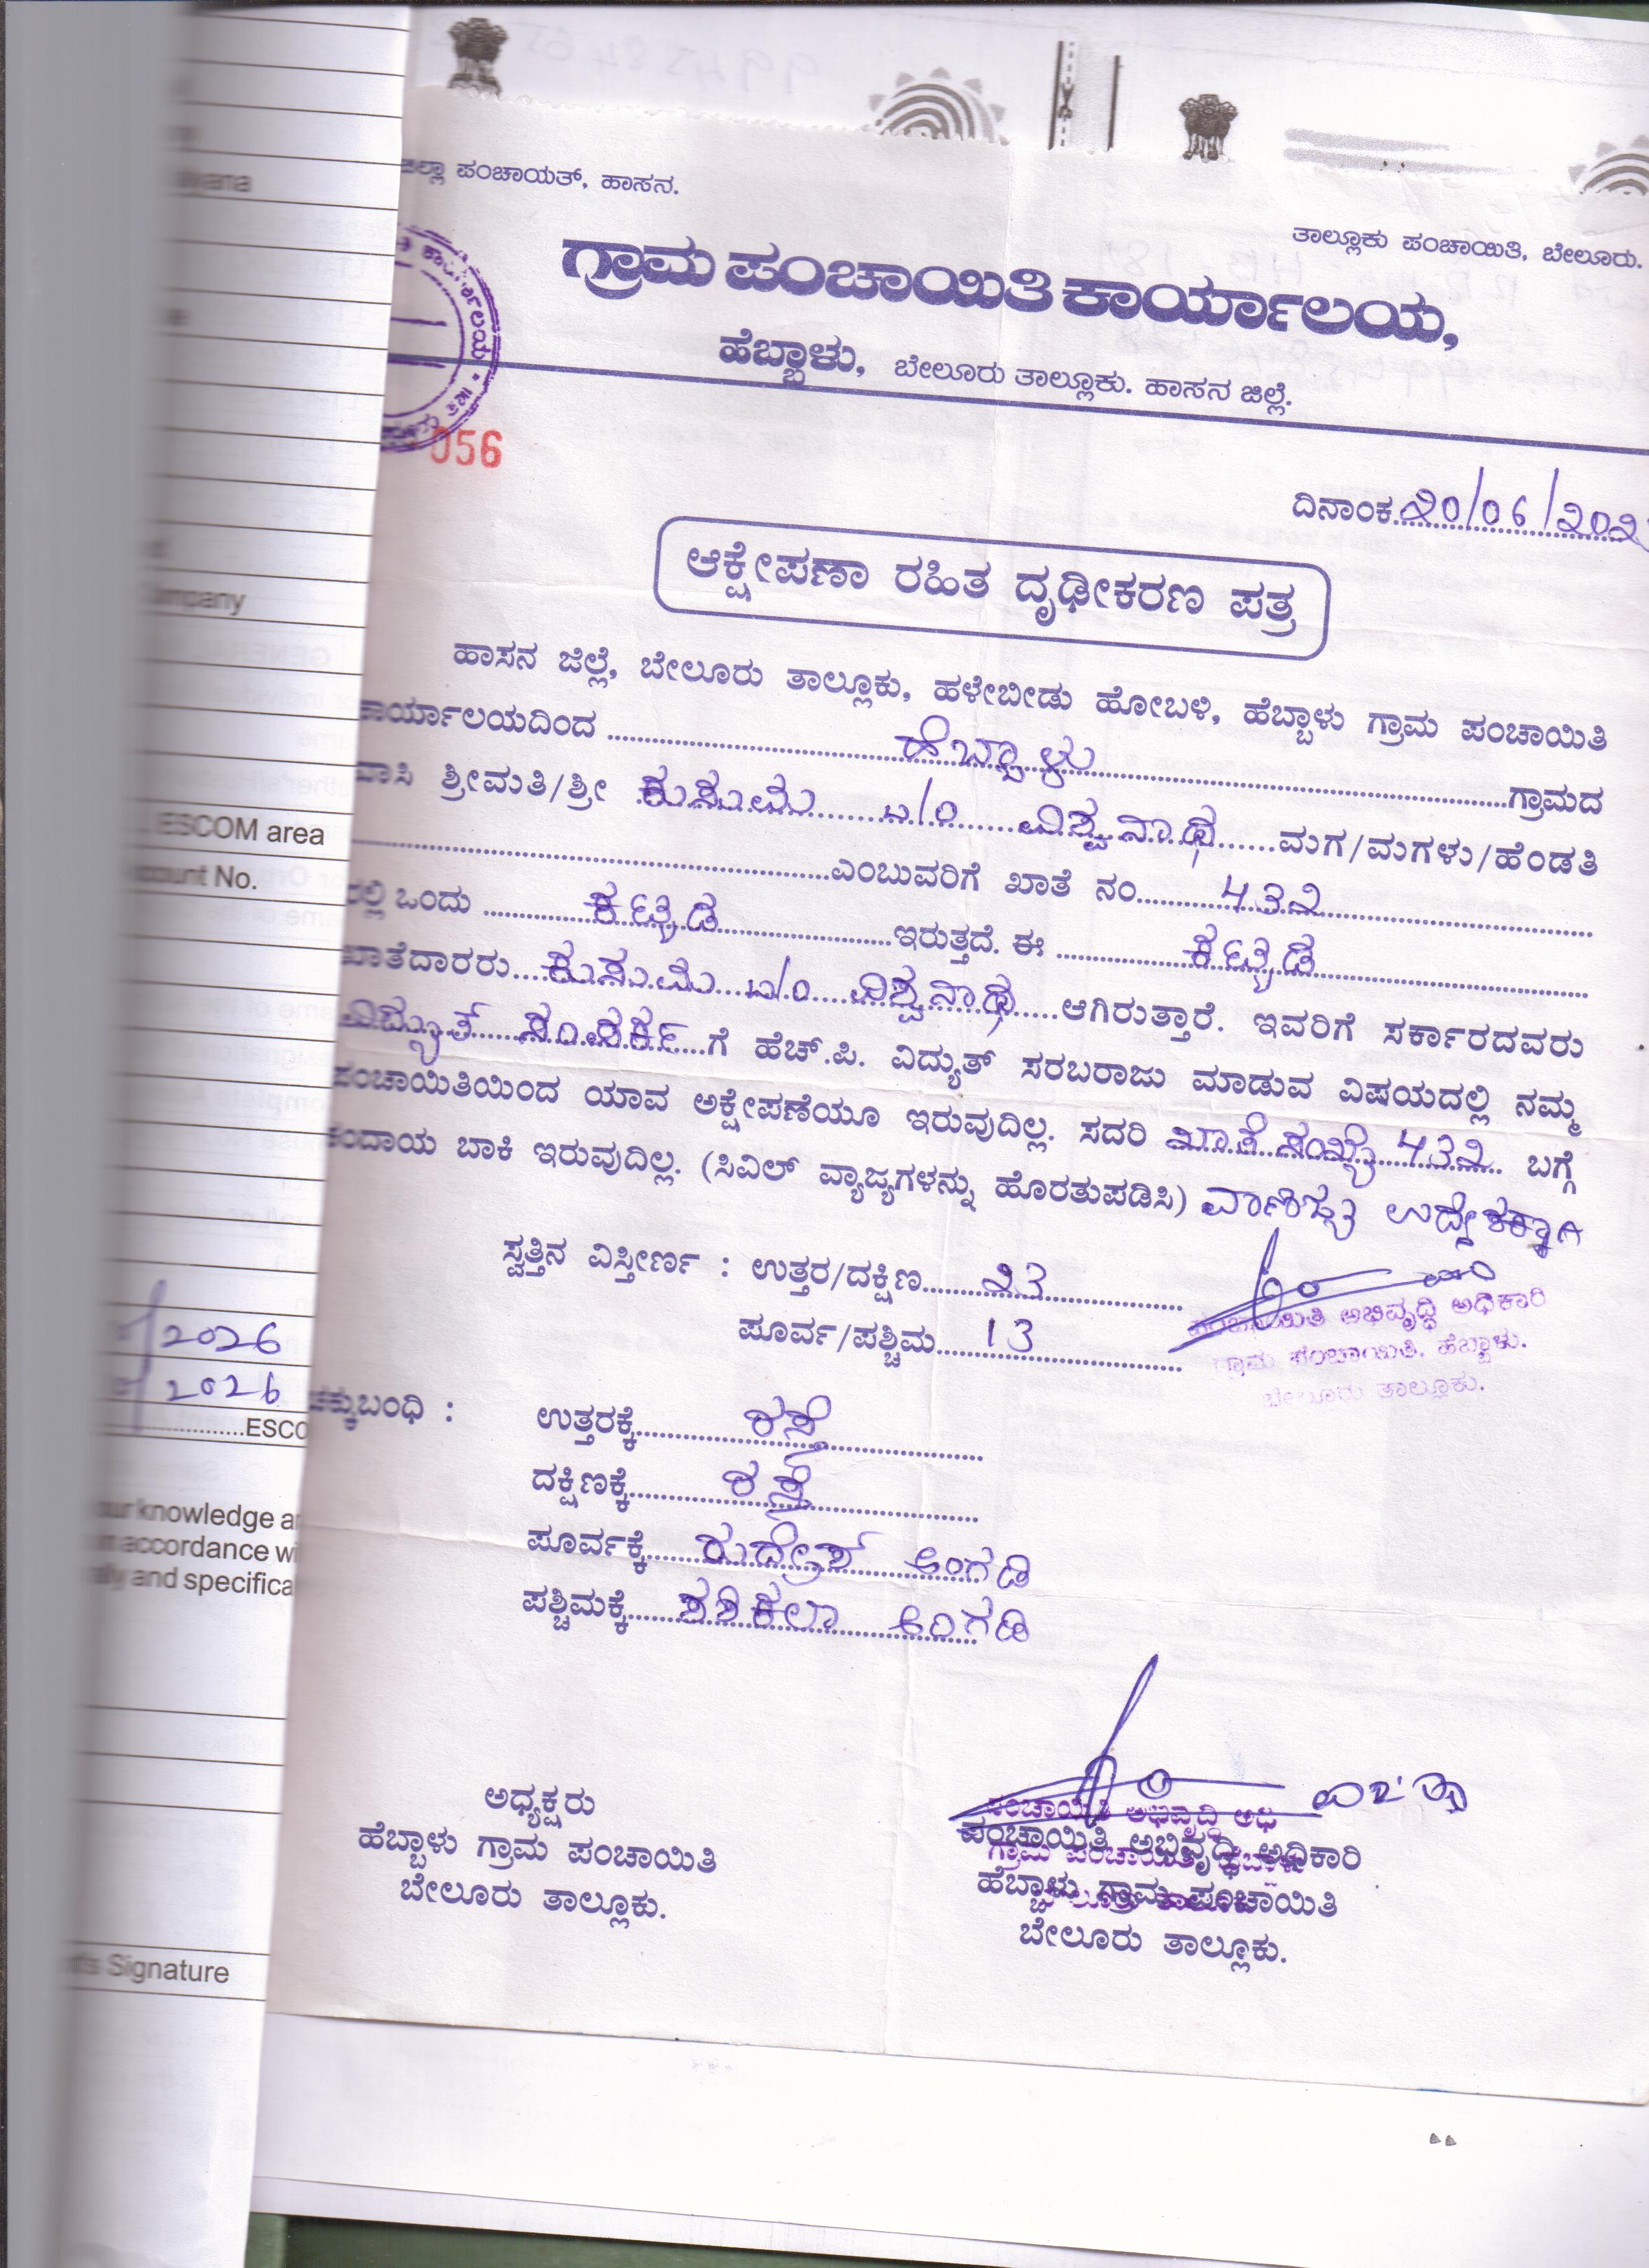 ಜಿಲ್ಲಾ ಪಂಚಾಯತ್, ಹಾಸನ.
ತಾಲ್ಲೂಕು ಪಂಚಾಯಿತಿ, ಬೇಲೂರು.
ಗ್ರಾಮ ಪಂಚಾಯಿತಿ ಕಾರ್ಯಾಲಯ,
ಹೆಬ್ಬಾಳು, ಬೇಲೂರು ತಾಲ್ಲೂಕು. ಹಾಸನ ಜಿಲ್ಲೆ.
056
ದಿನಾಂಕ 20/06/202
ಆಕ್ಷೇಪಣಾ ರಹಿತ ದೃಢೀಕರಣ ಪತ್ರ
ಹಾಸನ ಜಿಲ್ಲೆ, ಬೇಲೂರು ತಾಲ್ಲೂಕು, ಹಳೇಬೀಡು ಹೋಬಳಿ, ಹೆಬ್ಬಾಳು ಗ್ರಾಮ ಪಂಚಾಯಿತಿ
ಕಾರ್ಯಾಲಯದಿಂದ ಹೆಬ್ಬಾಳು ಗ್ರಾಮದ
ವಾಸಿ ಶ್ರೀಮತಿ/ಶ್ರೀ ಕುಸುಮ w/o ವಿಶ್ವನಾಥ ಮಗ/ಮಗಳು/ಹೆಂಡತಿ
ಎಂಬುವರಿಗೆ ಖಾತೆ ನಂ 432
ರಲ್ಲಿ ಒಂದು ಕಟ್ಟಡ ಇರುತ್ತದೆ. ಈ ಕಟ್ಟಡ
ಖಾತೆದಾರರು ಕುಸುಮ w/o ವಿಶ್ವನಾಥ ಆಗಿರುತ್ತಾರೆ. ಇವರಿಗೆ ಸರ್ಕಾರದವರು
ವಿದ್ಯುತ್ ಸಂಪರ್ಕ ಗೆ ಹೆಚ್.ಪಿ. ವಿದ್ಯುತ್ ಸರಬರಾಜು ಮಾಡುವ ವಿಷಯದಲ್ಲಿ ನಮ್ಮ
ಪಂಚಾಯಿತಿಯಿಂದ ಯಾವ ಅಕ್ಷೇಪಣೆಯೂ ಇರುವುದಿಲ್ಲ. ಸದರಿ ಖಾತೆ ಸಂಖ್ಯೆ 432 ಬಗ್ಗೆ
ಕಂದಾಯ ಬಾಕಿ ಇರುವುದಿಲ್ಲ. (ಸಿವಿಲ್ ವ್ಯಾಜ್ಯಗಳನ್ನು ಹೊರತುಪಡಿಸಿ) ವಾಣಿಜ್ಯ ಉದ್ದೇಶಕ್ಕಾಗಿ
ಸ್ವತ್ತಿನ ವಿಸ್ತೀರ್ಣ : ಉತ್ತರ/ದಕ್ಷಿಣ 23
ಪೂರ್ವ/ಪಶ್ಚಿಮ 13
ಪಂಚಾಯಿತಿ ಅಭಿವೃದ್ಧಿ ಅಧಿಕಾರಿ
ಗ್ರಾಮ ಪಂಚಾಯಿತಿ, ಹೆಬ್ಬಾಳು.
ಬೇಲೂರು ತಾಲ್ಲೂಕು.
ಚಕ್ಕುಬಂಧಿ :
ಉತ್ತರಕ್ಕೆ ರಸ್ತೆ
ದಕ್ಷಿಣಕ್ಕೆ ರಸ್ತೆ
ಪೂರ್ವಕ್ಕೆ ರುದ್ರೇಶ್ ಅಂಗಡಿ
ಪಶ್ಚಿಮಕ್ಕೆ ಶಶಿಕಲಾ ಅಂಗಡಿ
ಅಧ್ಯಕ್ಷರು
ಹೆಬ್ಬಾಳು ಗ್ರಾಮ ಪಂಚಾಯಿತಿ
ಬೇಲೂರು ತಾಲ್ಲೂಕು.
ಪಂಚಾಯಿತಿ ಅಭಿವೃದ್ಧಿ ಅಧಿಕಾರಿ
ಹೆಬ್ಬಾಳು ಗ್ರಾಮ ಪಂಚಾಯಿತಿ
ಬೇಲೂರು ತಾಲ್ಲೂಕು.
ESCOM area
Account No.
2026
2026
ESCO
knowledge
accordance
and
Signature